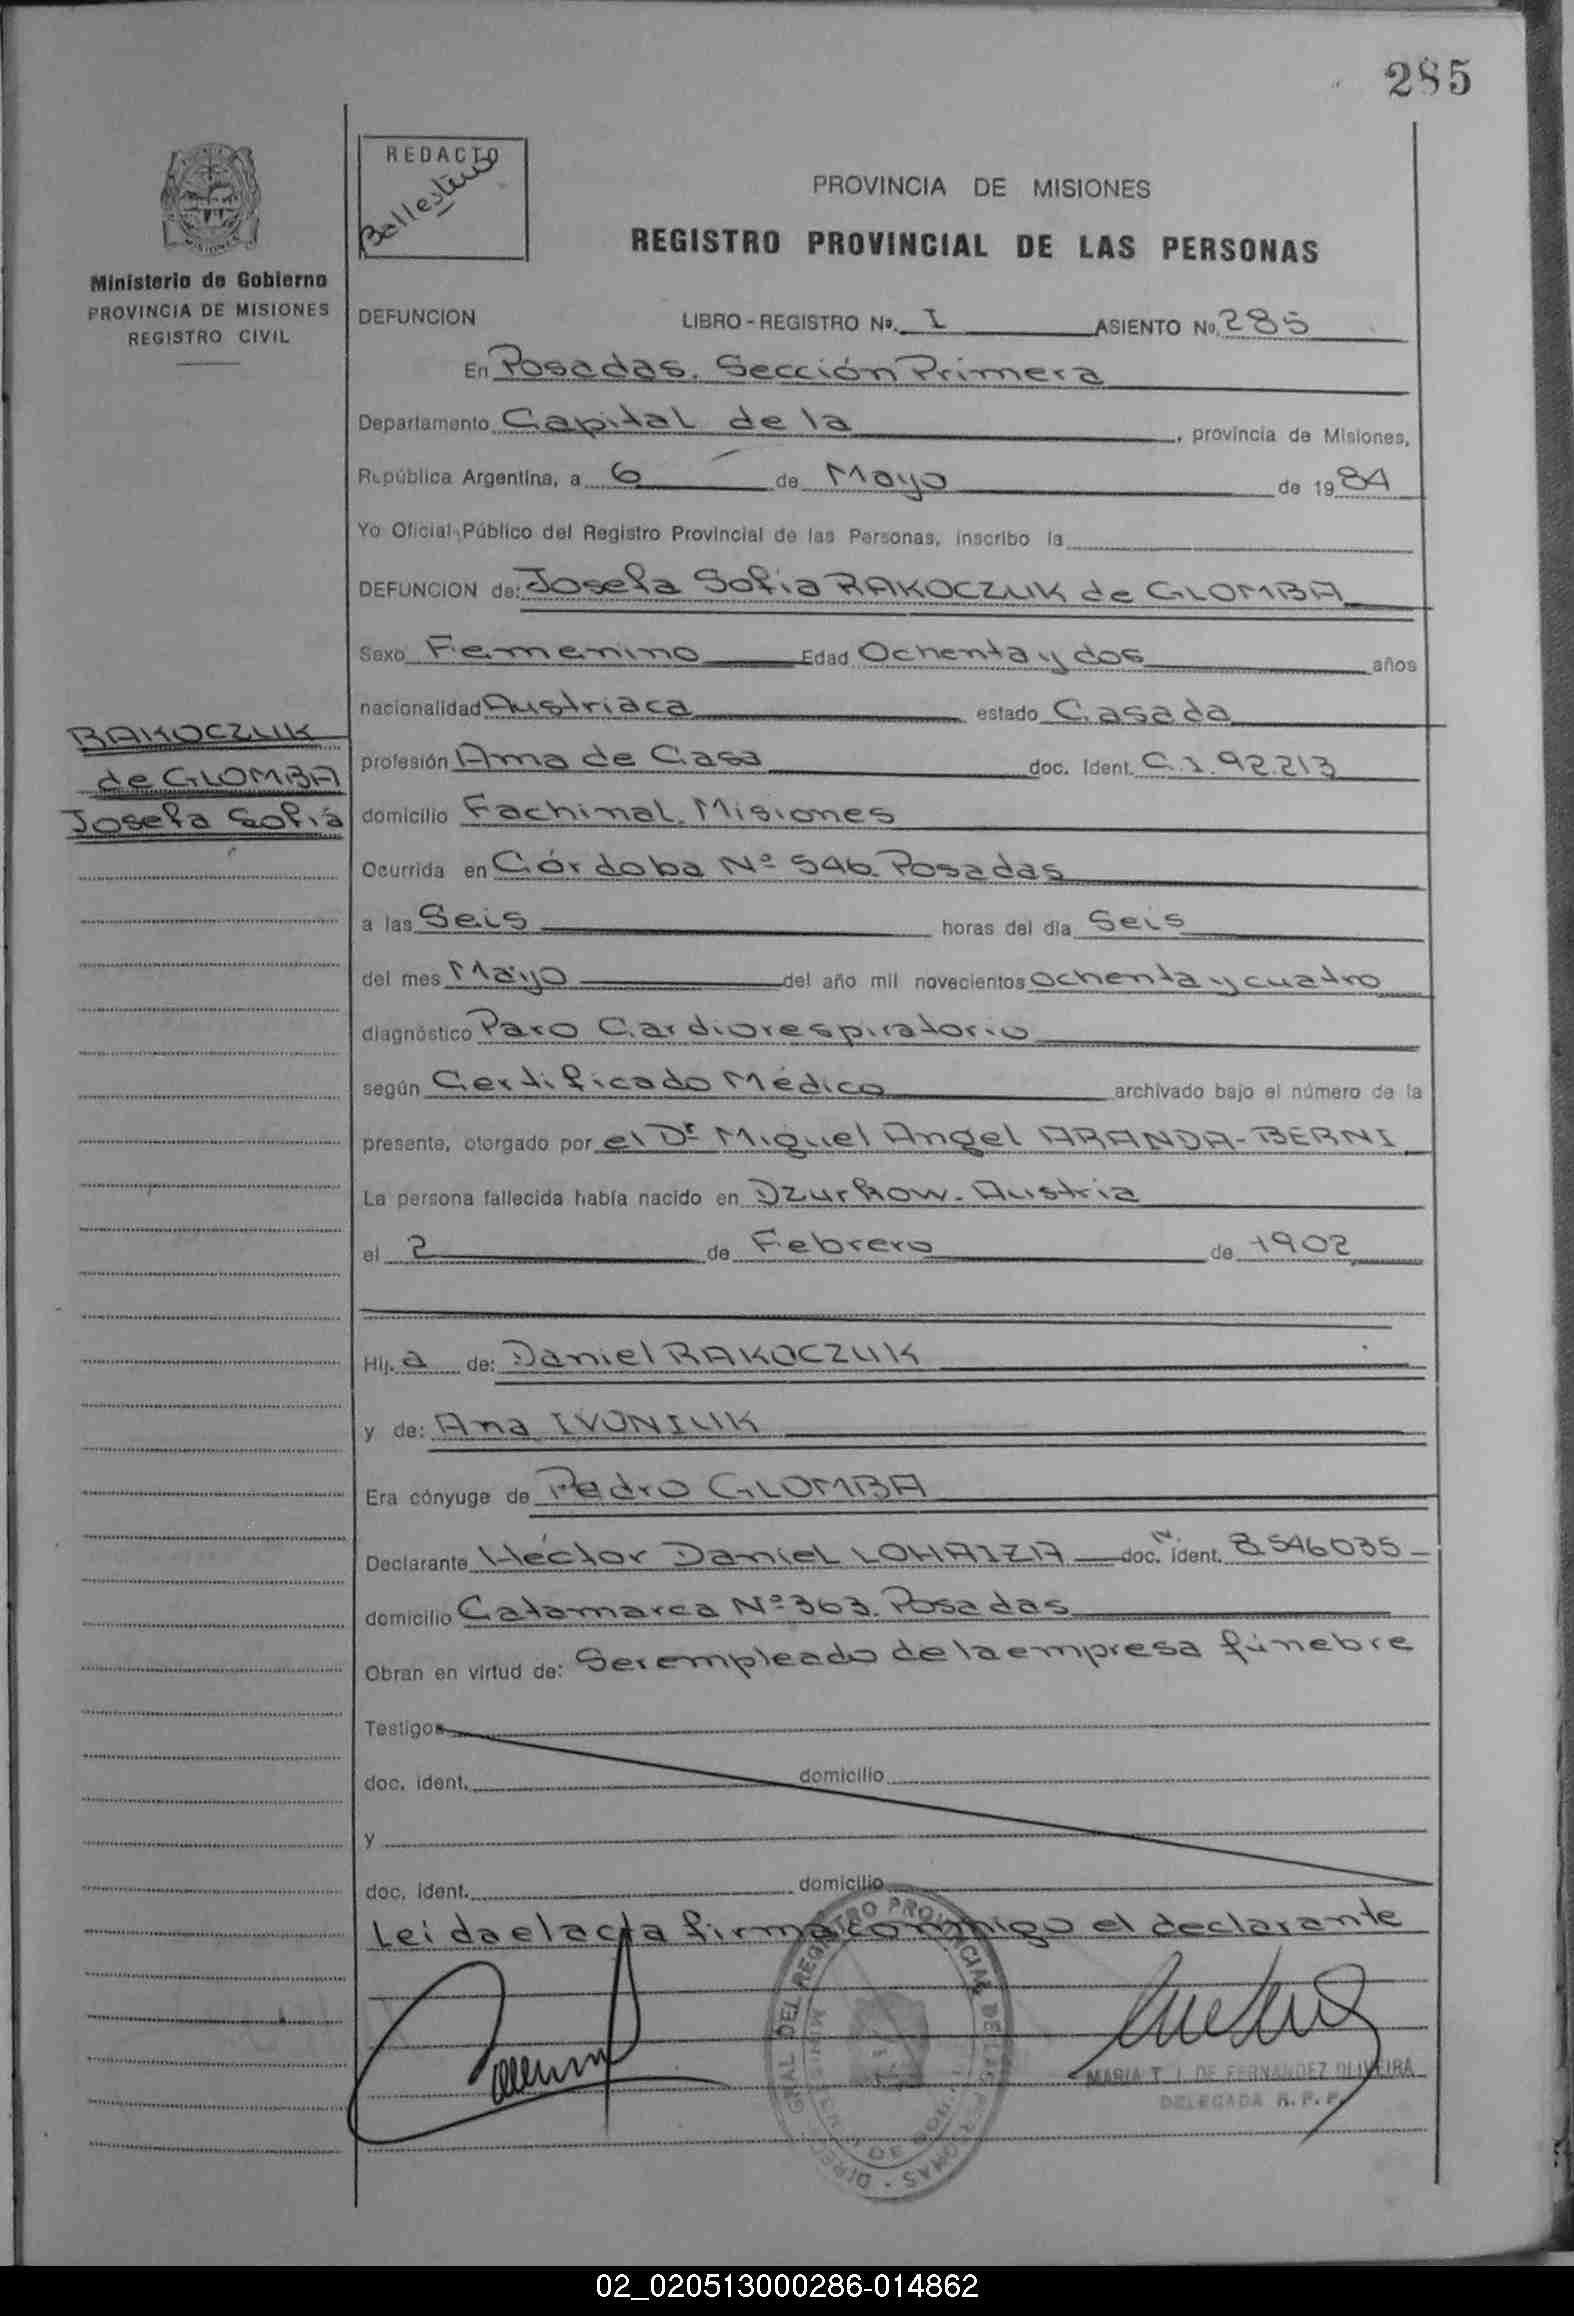 285
REDACTO
Ballestero
PROVINCIA DE MISIONES
REGISTRO PROVINCIAL DE LAS PERSONAS
Ministerio de Gobierno
PROVINCIA DE MISIONES
REGISTRO CIVIL
DEFUNCION LIBRO-REGISTRO No. I ASIENTO No. 285
En Posadas. Sección Primera
Departamento Capital de la, provincia de Misiones,
República Argentina, a 6 de Mayo de 1984
Yo Oficial Público del Registro Provincial de las Personas, inscribo la
DEFUNCION de: Josefa Sofia RAKOCZUK de GLOMBA
Sexo Femenino Edad Ochenta y dos años
nacionalidad Austriaca estado Casada
RAKOCZUK
de GLOMBA
Josefa Sofia
profesión Ama de Casa doc. Ident. C.I. 92.213
domicilio Fachinal. Misiones
Ocurrida en Córdoba Nº 546. Posadas
a las Seis horas del día Seis
del mes Mayo del año mil novecientos ochenta y cuatro
diagnóstico Paro Cardiorespiratorio
según Certificado Médico archivado bajo el número de la
presente, otorgado por el Dr Miguel Angel ARANDA-BERNI
La persona fallecida había nacido en Dzurkow. Austria
el 2 de Febrero de 1902
Hij a de: Daniel RAKOCZUK
y de: Ana IVONIUK
Era cónyuge de Pedro GLOMBA
Declarante Héctor Daniel LOHAIZA doc. N. ident. 8546035
domicilio Catamarca Nº 363. Posadas
Obran en virtud de: Ser empleado de la empresa fúnebre
Testigos
doc. ident. domicilio
y
doc. ident. domicilio
Leida el acta firma conmigo el declarante
MARIA T. I. DE FERNANDEZ OLIVEIRA
DELEGADA R. P. P.
02_020513000286-014862